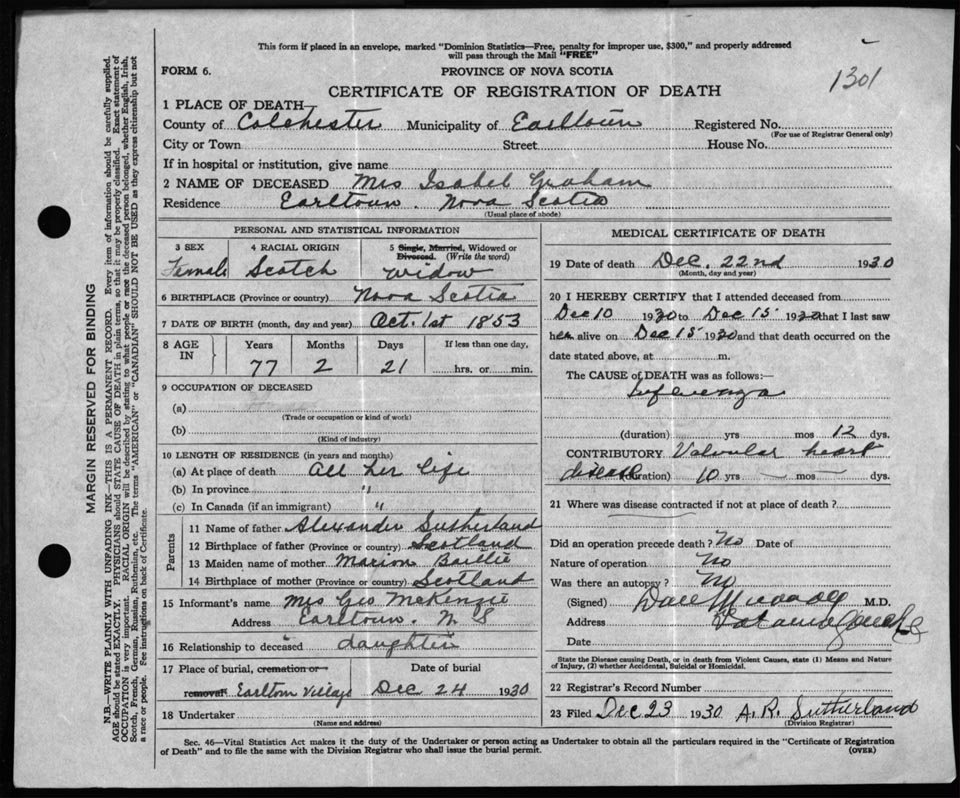 This form if placed in an envelope, marked "Dominion Statistics—Free, penalty for improper use, $300," and properly addressed
will pass through the Mail "FREE"
FORM 6.
PROVINCE OF NOVA SCOTIA
1301
CERTIFICATE OF REGISTRATION OF DEATH
1 PLACE OF DEATH—
County of Colchester Municipality of Earltown Registered No.
(For use of Registrar General only)
City or Town Street House No.
If in hospital or institution, give name
2 NAME OF DECEASED Mrs Isabel Graham
Residence Earltown. Nova Scotia
(Usual place of abode)
PERSONAL AND STATISTICAL INFORMATION
3 SEX 4 RACIAL ORIGIN 5 Single, Married, Widowed or
Divorced. (Write the word)
Female Scotch widow
6 BIRTHPLACE (Province or country) Nova Scotia
7 DATE OF BIRTH (month, day and year) Oct. 1st 1853
8 AGE IN Years Months Days If less than one day,
77 2 21 hrs. or min.
9 OCCUPATION OF DECEASED
(a)
(Trade or occupation or kind of work)
(b)
(Kind of industry)
10 LENGTH OF RESIDENCE (in years and months)
(a) At place of death all her life
(b) In province "
(c) In Canada (if an immigrant) "
Parents
11 Name of father Alexander Sutherland
12 Birthplace of father (Province or country) Scotland
13 Maiden name of mother Marion Baillie
14 Birthplace of mother (Province or country) Scotland
15 Informant's name Mrs Geo McKenzie
Address Earltown. N S
16 Relationship to deceased daughter
17 Place of burial, cremation or Date of burial
removal Earltown Village Dec 24 1930
18 Undertaker
(Name and address)
MEDICAL CERTIFICATE OF DEATH
19 Date of death Dec. 22nd 1930
(Month, day and year)
20 I HEREBY CERTIFY that I attended deceased from
Dec 10 1930 to Dec 15 1930 that I last saw
her alive on Dec 15 1930 and that death occurred on the
date stated above, at m.
The CAUSE of DEATH was as follows:—
Influenza
(duration) yrs mos 12 dys.
CONTRIBUTORY Valvular heart
disease (duration) 10 yrs mos dys.
21 Where was disease contracted if not at place of death?
Did an operation precede death? No Date of
Nature of operation No
Was there an autopsy? No
(Signed) M.D.
Address
Date
State the Disease causing Death, or in death from Violent Causes, state (1) Means and Nature
of Injury, (2) whether Accidental, Suicidal or Homicidal.
22 Registrar's Record Number
23 Filed Dec 23 1930 A. R. Sutherland
(Division Registrar)
Sec. 46—Vital Statistics Act makes it the duty of the Undertaker or person acting as Undertaker to obtain all the particulars required in the "Certificate of Registration
of Death" and to file the same with the Division Registrar who shall issue the burial permit. (OVER)
MARGIN RESERVED FOR BINDING
N.B.—WRITE PLAINLY WITH UNFADING INK—THIS IS A PERMANENT RECORD. Every item of information should be carefully supplied.
AGE should be stated EXACTLY. PHYSICIANS should STATE CAUSE OF DEATH in plain terms, so that it may be properly classified. Exact statement of
OCCUPATION is very important. RACIAL ORIGIN will be described by stating to what people or race the deceased person belonged, whether English, Irish,
Scotch, French, German, Russian, Ruthenian, etc. The terms "AMERICAN" or "CANADIAN" SHOULD NOT BE USED as they express citizenship but not
a race or people. See instructions on back of Certificate.